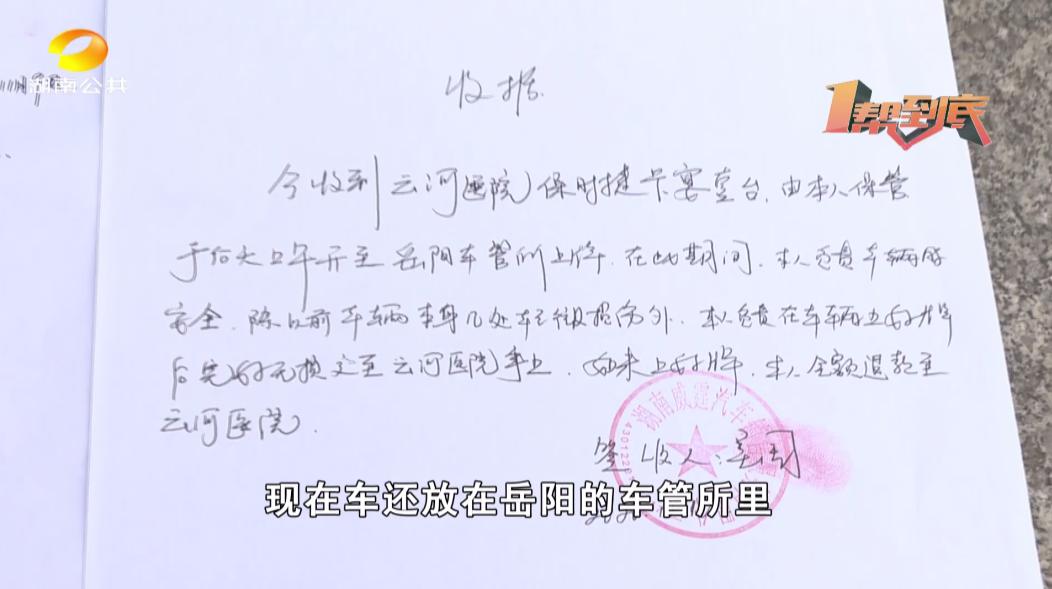 湖南公共
1帮到底
收据
今收到云河医院保时捷卡宴壹台,由本人保管
于后天上午开至岳阳车管所上牌.在此期间.本人负责车辆
安全.除以前车辆车身几处轻微损伤外.本人负责在车辆上好牌
后完好无损交至云河医院.如未上好牌.本人全额退款至
云河医院.
湖南威霆汽车
4301220
签收人:
现在车还放在岳阳的车管所里